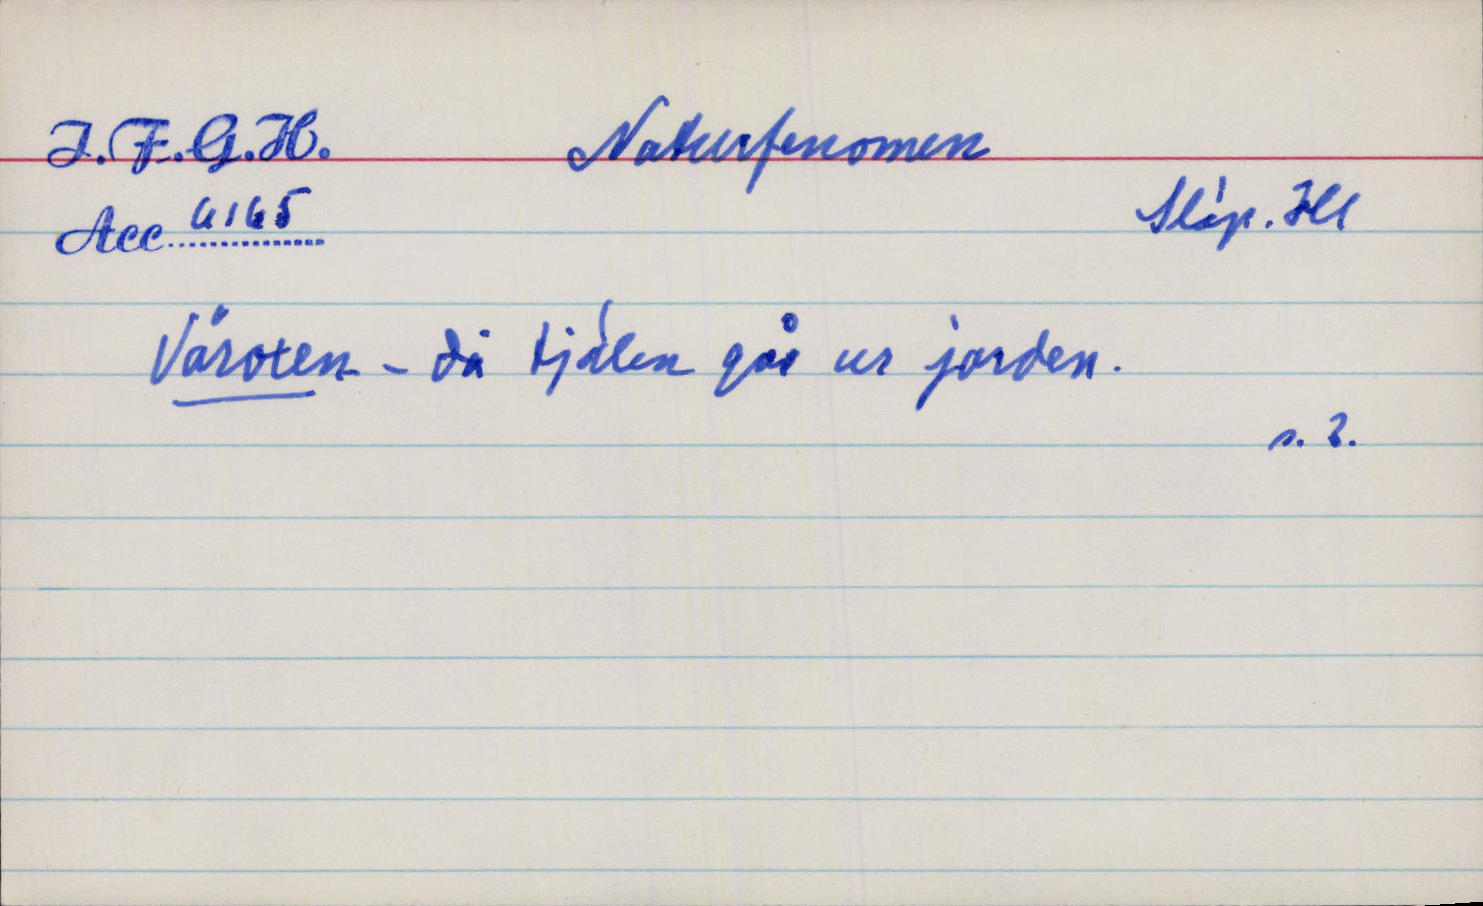 I.F.G.H.
Naturfenomen
Acc 4165
Släp. Hl
Våroten - då tjälen går ur jorden.
s. 2.